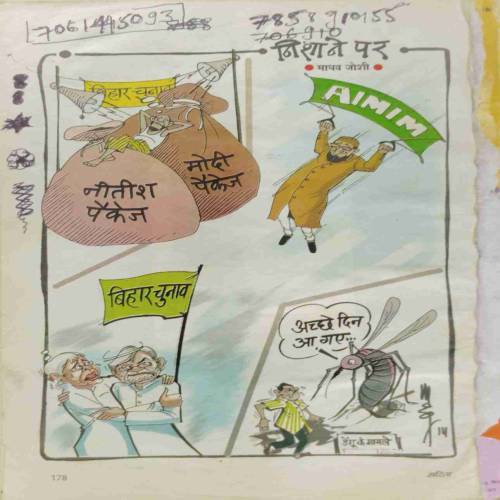 7061445093
7858910455
706910
निशाने पर
माधव जोशी
बिहार चुनाव
मोदी
पैकेज
नीतीश
पैकेज
AIMIM
बिहार चुनाव
अच्छे दिन
आ गए...
डेंगू के मामले
178
सरिता